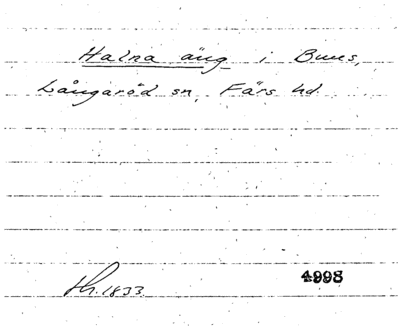 Halna äng i Buus,
Långaröd sn, Färs hd
Hr. 1833.
4998